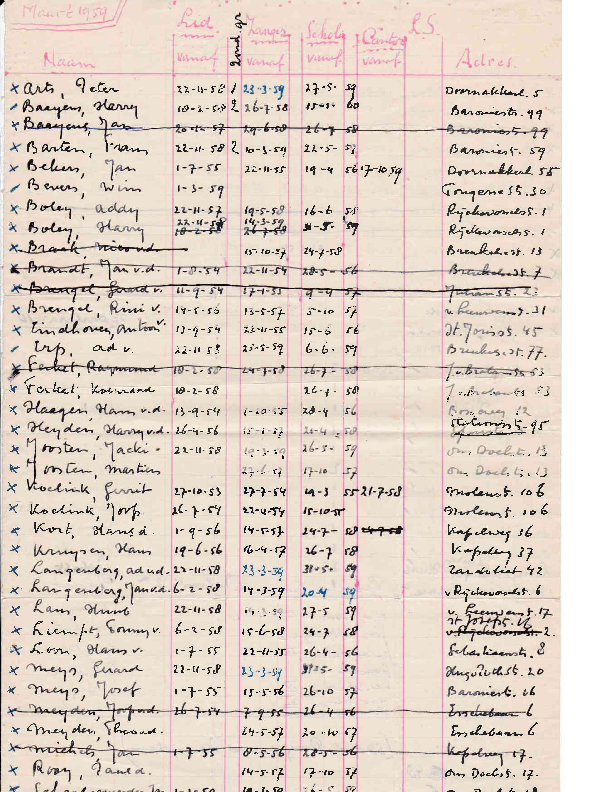 Maart 1959
Lid 2ond. gr Zanger Schola Cantor L.S.
Naam vanaf vanaf vanaf vanaf Adres
x Arts, Peter 22-11-56 1 23-3-59 27-5-59 Doornakkerl. 5
Baayens, Harry 18-2-58 2 26-7-58 60 Baroniestr. 99
x Baayens, Jan 20-12-57 29-6-58 26-7 58 Baroniestr. 99
x Barten, Frans 22-11-58 2 10-3-59 22-5-59 Baroniestr. 59
x Bekers, Jan 1-7-55 22-11-55 19-4 56 17-10-59 Doornakkerl. 55
Bevers, Wim 1-3-59 Tongersestr. 30
x Boley, Addy 22-11-57 19-5-58 16-6 58 Rijckevorselstr. 1
x Boley, Harry 22-11-58 14-3-59 31-5-59 Rijckevorselstr. 1
18-2-58 26-7-58
x Braak Nico v.d. 15-10-57 24-7-58 13
x Brandt, Jan v.d. 1-8-54 22-11-54 28-5-56 7
x Brengel, Gerard v. 11-9-54 17-1-55 9-4 57 23
x Brengel, Rini v. 14-5-56 13-5-57 5-10 57 v. Leeuwenstr. 31
x Eindhoven, Antoon v. 13-9-54 22-11-55 15-6 56 St. Jorisstr. 45
Erp, ad v. 22-11-58 23-5-59 6-6-59 77
x Ferket, Raymund 18-2-58 24-7-58 26-7-58 53
x Ferket, 18-2-58 26-7-58 53
x Haagen Hans v.d. 13-9-54 1-20-55 28-4 56 12
x Heyden, Harry v.d. 26-4-56 15-1-57 21-4 58 Stationsstr. 95
x Joosten, Jacki 22-11-58 19-3-59 26-5-59 Ons Doelstr. 13
x Joosten, Martien 27-6-57 17-10 57 Ons Doelstr. 13
x Koelink, Gerrit 27-10-53 27-7-54 19-3 55 21-7-58 Molenstr. 106
x Koelink, Josef 26-7-54 22-4-54 15-10-55 Molenstr. 106
x Kort, Hans d. 1-9-56 14-5-57 24-7-58 24-7-58 Kapelweg 36
x Kruysen, Hans 19-6-56 16-4-57 26-7 58 Kapelweg 37
x Langenberg, ad v.d. 22-11-58 23-3-59 31-5-59 42
x Langenberg, Jan v.d. 6-2-58 14-3-59 20-4 59 v. Rijckevorselstr. 6
x Lam, Huub 22-11-58 14-3-59 27-5 59 v. Leeuwenstr. 17
St. Josefs. 16
x Liempt, Sonny v. 6-2-58 15-6-58 24-7 58 v. Rijckevorselstr. 2.
x Loon, Hans v. 1-7-55 22-11-55 26-4-56 Sebastiaanstr. 8
x Meys, Gerard 22-11-58 23-3-59 31-5-59 20
x Meys, Josef 1-7-55 15-5-56 26-10 57 Baroniestr. 16
x Meyden, Josf v.d. 26-7-54 7-9-55 26-4 56 Esschebaan 6
Meyden, Theo v.d. 14-5-57 20-10 57 Esschebaan 6
x Michels Jan 1-7-55 8-5-56 28-5-56 Kapelweg 17.
x Rooy, Paul d. 14-5-57 17-10 57 Ons Doelstr. 17.